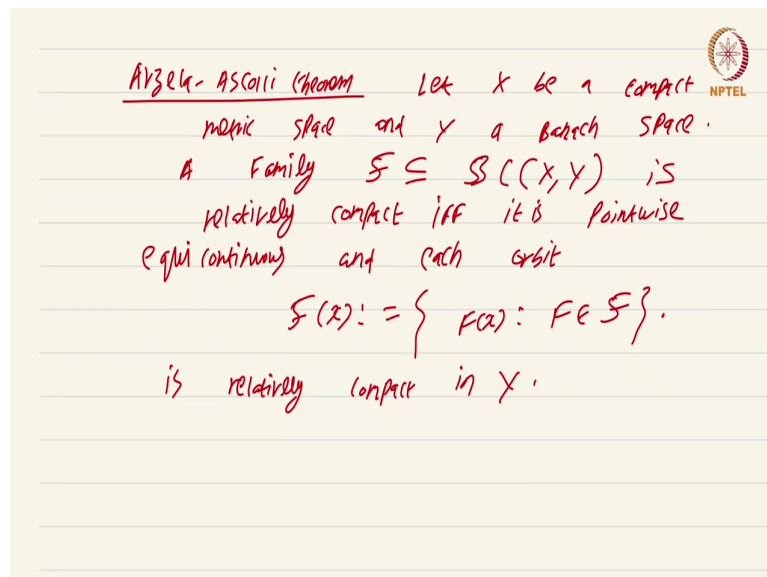 Arzela-Ascolli theorem Let X be a compact
NPTEL
metric space and Y a Banach space.
A Family 𝓕 ⊆ BC(X,Y) is
relatively compact iff it is pointwise
equicontinuous and each orbit
𝓕(x) := { F(x) : F ∈ 𝓕 }.
is relatively compact in Y.